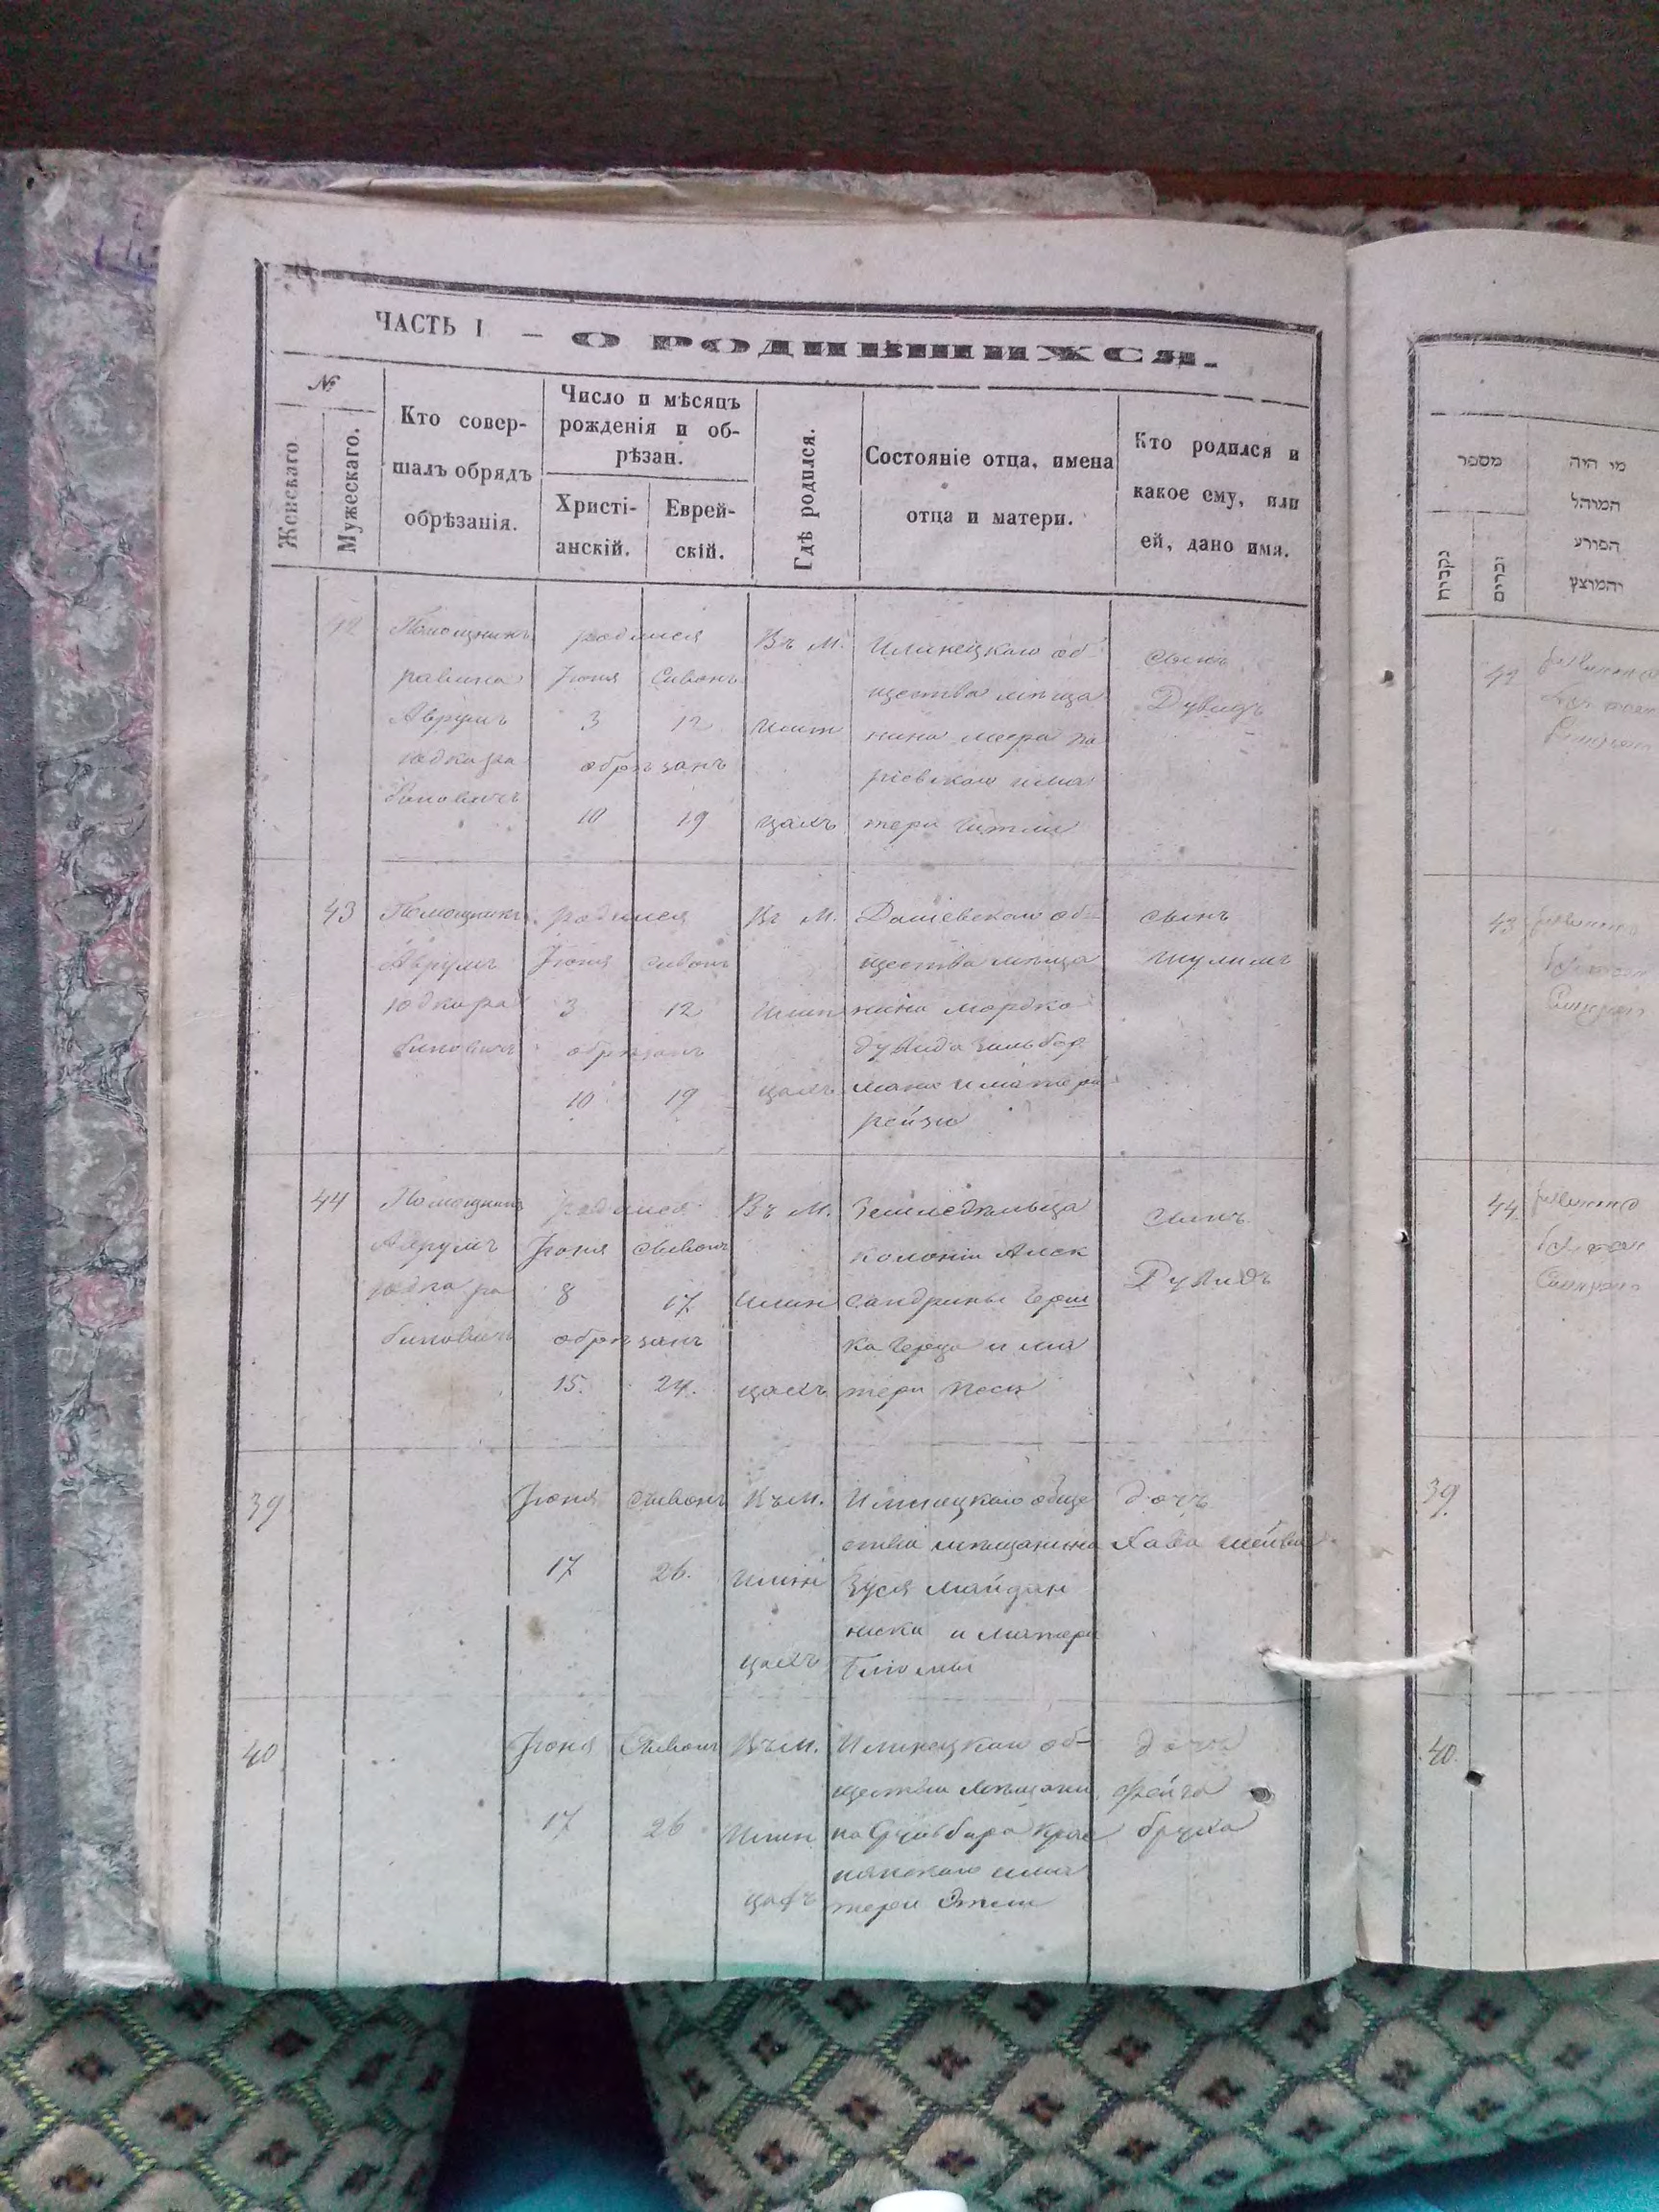 ЧАСТЬ I — О РОДИВШИХСЯ.
№
Женскаго
Мужескаго.
Кто совер-
шалъ обрядъ
обрѣзанія.
Число и мѣсяцъ
рожденія и об-
рѣзан.
Христі-
анскій.
Еврей-
скій.
Гдѣ родился.
Состояніе отца, имена
отца и матери.
Кто родился и
какое ему, или
ей, дано имя.
42
Помощникъ
равина
Аврумъ
Юдка ра
биновичъ
родился
Іюня
3
Сивонъ
12
обрѣзанъ
10
19
Въ М.
Илин
цахъ
Илинецкаго об-
щества мѣща
нина Меера
и ма
тери Гитли
сынъ
Дувидъ
43
Помощникъ
Аврумъ
Юдка ра
биновичъ
родился
Іюня
3
Сивонъ
12
обрѣзанъ
10
19
Въ М.
Илин
цахъ
Дашевскаго об-
щества мѣща
нина Мордко
Дувида Зильбер
мана и матери
Рейзи
сынъ
Шулимъ
44
Помощникъ
Аврумъ
Юдка ра
биновичъ
родился
Іюня
8
Сивонъ
17
обрѣзанъ
15.
24.
Въ М.
Илин
цахъ
Земледѣльца
колоніи Алек
сандрины Герш
ка Герца и ма
тери Песи
сынъ
Дувидъ
39
Іюня
17
Сивонъ
26.
Въ М.
Илин
цахъ
Илинецкаго обще
ства мѣщанина
Зуся Майдан
ника и матери
Блюмы
дочь
Хава Шейва
40
Іюня
17
Сивонъ
26
Въ М.
Илин
цахъ
Илинецкаго об-
щества мѣщани
на
и ма
тери Этли
дочь
Фейга
Бруха
מספר
נקבות
זכרים
מי היה
המוהל
הפורע
והמוצץ
42
43
44
39.
40.